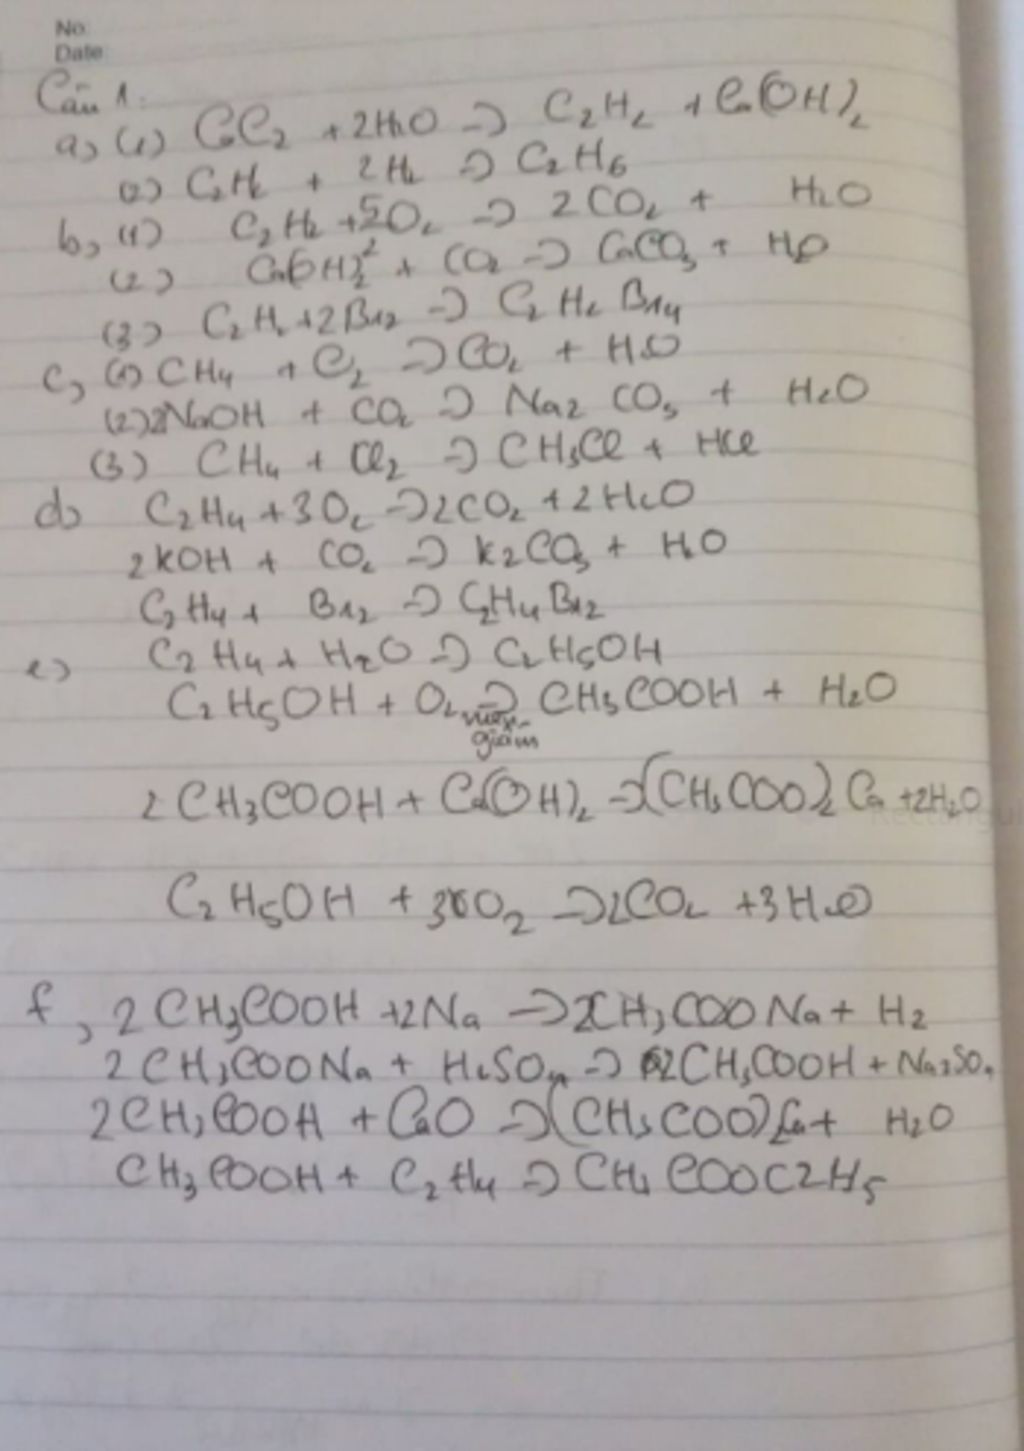 No
Date
Câu 1:
a, (1) CaC2 + 2H2O → C2H2 + Ca(OH)2
(2) C2H2 + 2H2 → C2H6
b, (1) C2H2 + 5/2O2 → 2CO2 + H2O
(2) Ca(OH)2 + CO2 → CaCO3 + H2O
(3) C2H2 + 2Br2 → C2H2Br4
c, (1) CH4 + O2 → CO2 + H2O
(2) 2NaOH + CO2 → Na2CO3 + H2O
(3) CH4 + Cl2 → CH3Cl + HCl
d, C2H4 + 3O2 → 2CO2 + 2H2O
2KOH + CO2 → K2CO3 + H2O
C2H4 + Br2 → C2H4Br2
e, C2H4 + H2O → C2H5OH
C2H5OH + O2 → CH3COOH + H2O
giấm
2CH3COOH + Ca(OH)2 → (CH3COO)2Ca + 2H2O
C2H5OH + 3O2 → 2CO2 + 3H2O
f, 2CH3COOH + 2Na → 2CH3COONa + H2
2CH3COONa + H2SO4 → 2CH3COOH + Na2SO4
2CH3COOH + CaO → (CH3COO)2Ca + H2O
CH3COOH + C2H4 → CH3COOC2H5